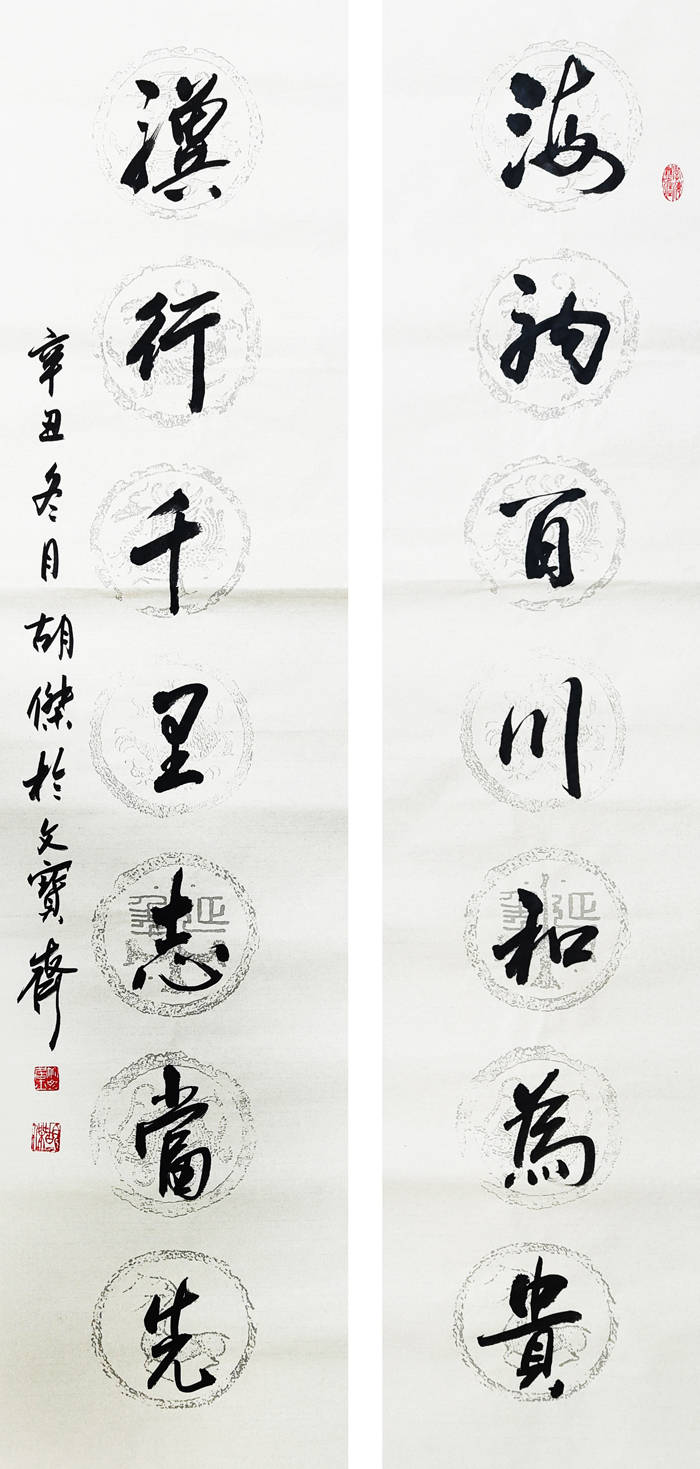 海納百川和為貴
驥行千里志當先
辛丑冬月胡傑於文寶齋